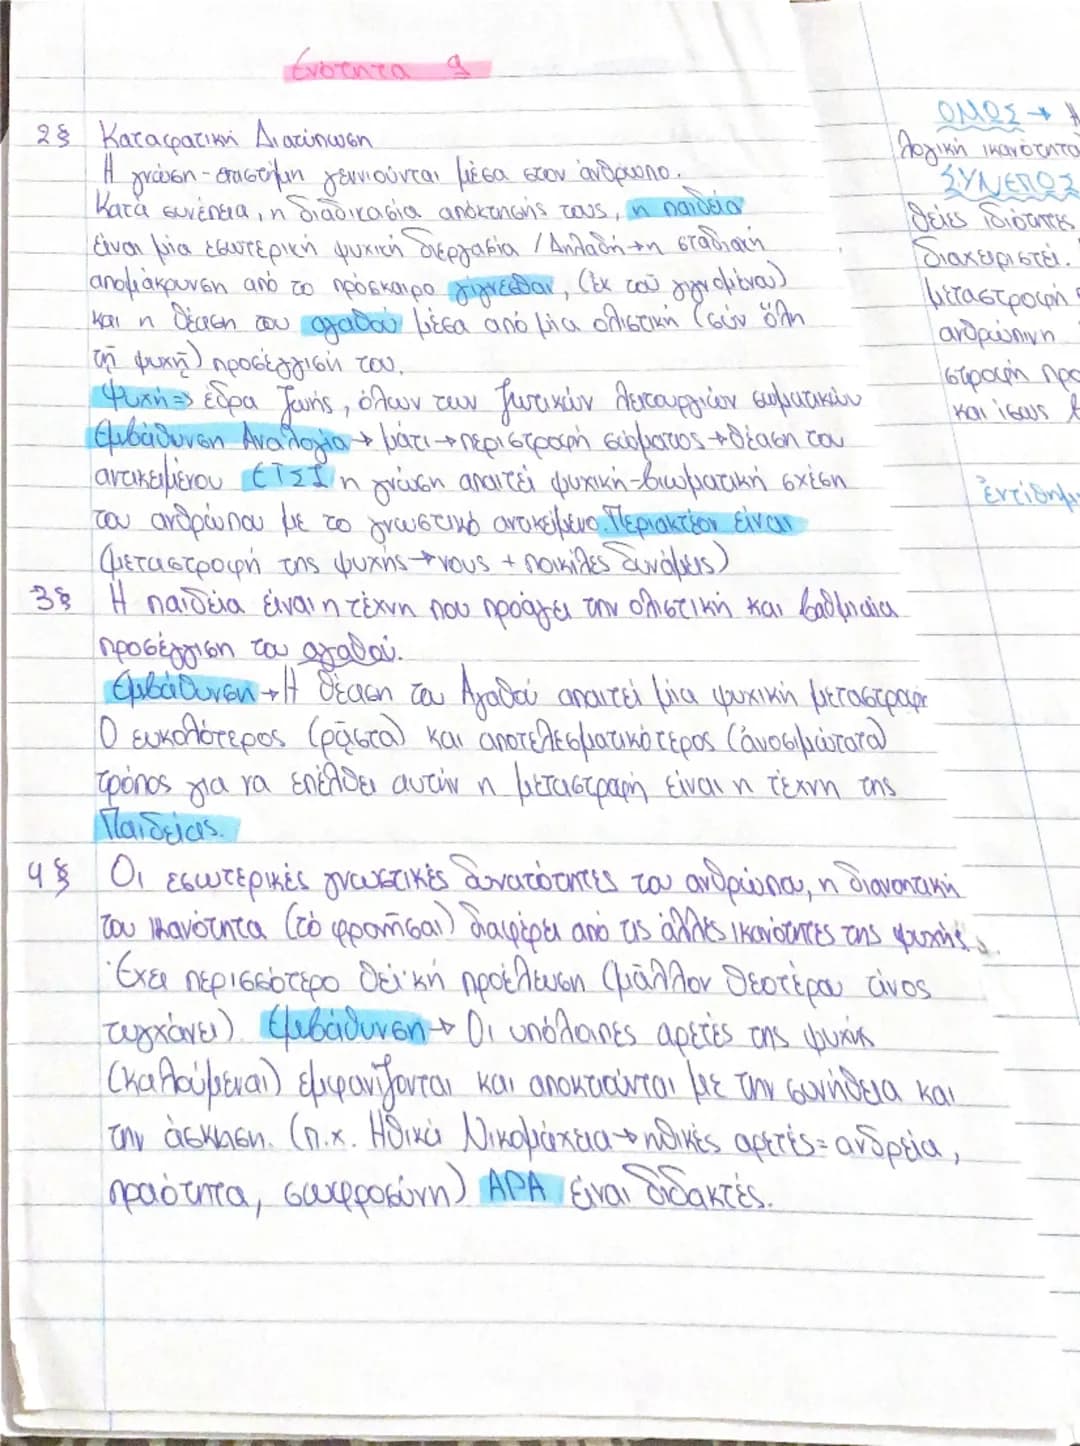 Ενότητα 9
2§ Καταφατική Διατύπωση
Η γνώση-επιστήμη γεννιούνται μέσα στον άνθρωπο.
Κατά συνέπεια, η διαδικασία απόκτησής τους, η παιδεία
είναι μία εσωτερική ψυχική διεργασία / Δηλαδή → η σταδιακή
απομάκρυνση από το πρόσκαιρο γίγνεσθαι, (ἐκ τοῦ γιγνομένου)
και η θέαση του αγαθού μέσα από μία ολιστική (σύν ὅλῃ
τῇ ψυχῇ) προσέγγισή του.
Ψυχή => έδρα ζωής, όλων των ζωτικών λειτουργιών σωματικών
Εμβάθυνση Αναλογία → μάτι → περιστροφή σώματος → θέαση του
αντικειμένου ΕΤΣΙ η γνώση απαιτεί ψυχική-βιωματική σχέση
του ανθρώπου με το γνωστικό αντικείμενο. Περιακτέον είναι
(μεταστροφή της ψυχής → νους + ποικίλες δυνάμεις)
3§ Η παιδεία είναι η τέχνη που προάγει την ολιστική και βαθμιαία
προσέγγιση του αγαθού.
Εμβάθυνση → Η θέαση του Αγαθού απαιτεί μία ψυχική μεταστροφή
Ο ευκολότερος (ρᾷστα) και αποτελεσματικότερος (ἀνυσιμώτατα)
τρόπος για να επέλθει αυτήν η μεταστροφή είναι η τέχνη της
Παιδείας.
4§ Οι εσωτερικές γνωστικές δυνατότητες του ανθρώπου, η διανοητική
του ικανότητα (τό φρονῆσαι) διαφέρει από τις άλλες ικανότητες της ψυχής.
Έχει περισσότερο θεϊκή προέλευση (μᾶλλον θεοτέρου τινος
τυγχάνει). Εμβάθυνση → Οι υπόλοιπες αρετές της ψυχής
(καλούμεναι) εμφανίζονται και αποκτιώνται με την συνήθεια και
την άσκηση. (π.χ. Ηθικά Νικομάχεια → ηθικές αρετές = ανδρεία,
πραότητα, σωφροσύνη) ΑΡΑ είναι διδακτές.
ΟΜΩΣ → Η
λογική ικανότητα
ΣΥΝΕΠΩΣ
θείες ιδιότητες
διαχειριστεί.
μεταστροφή
ανθρώπινη
στροφή προ
και ίσως